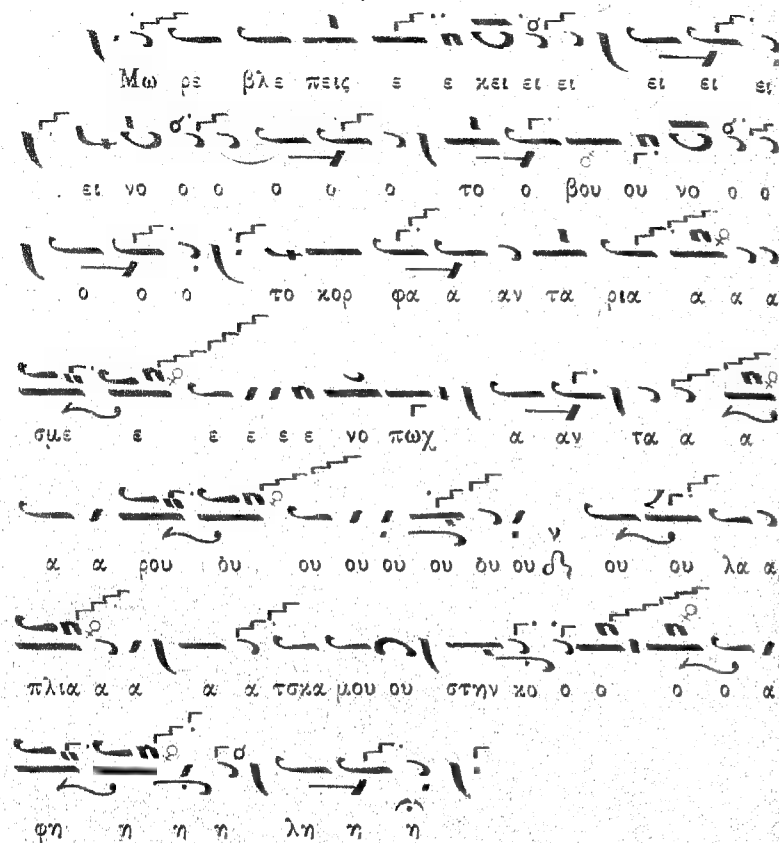 Μω ρε βλε πεις ε ε κει ει ει ει ει ει
ει νο ο ο ο ο ο το ο βου ου νο ο ο
ο ο ο το κορ φα α αν τα ρια α α α
σμε ε ε ε ε ε νο πωχ α αν τα α α
α α ρου δυ ου ου ου ου δυ ου ου ου λα α
πλια α α α α τσκα μου ου στην κο ο ο ο ο α
φη η η η λη η η